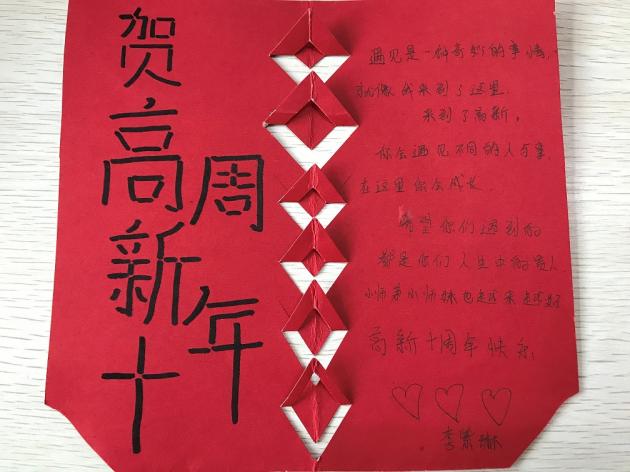 贺高新十
周年
遇见是一种奇妙的事情，
就像我来到了这里
来到了高新，
你会遇见不同的人与事，
在这里你会成长
希望你们遇到的
都是你们人生中的贵人
小师弟小师妹也越来越好
高新十周年快乐
李紫琳